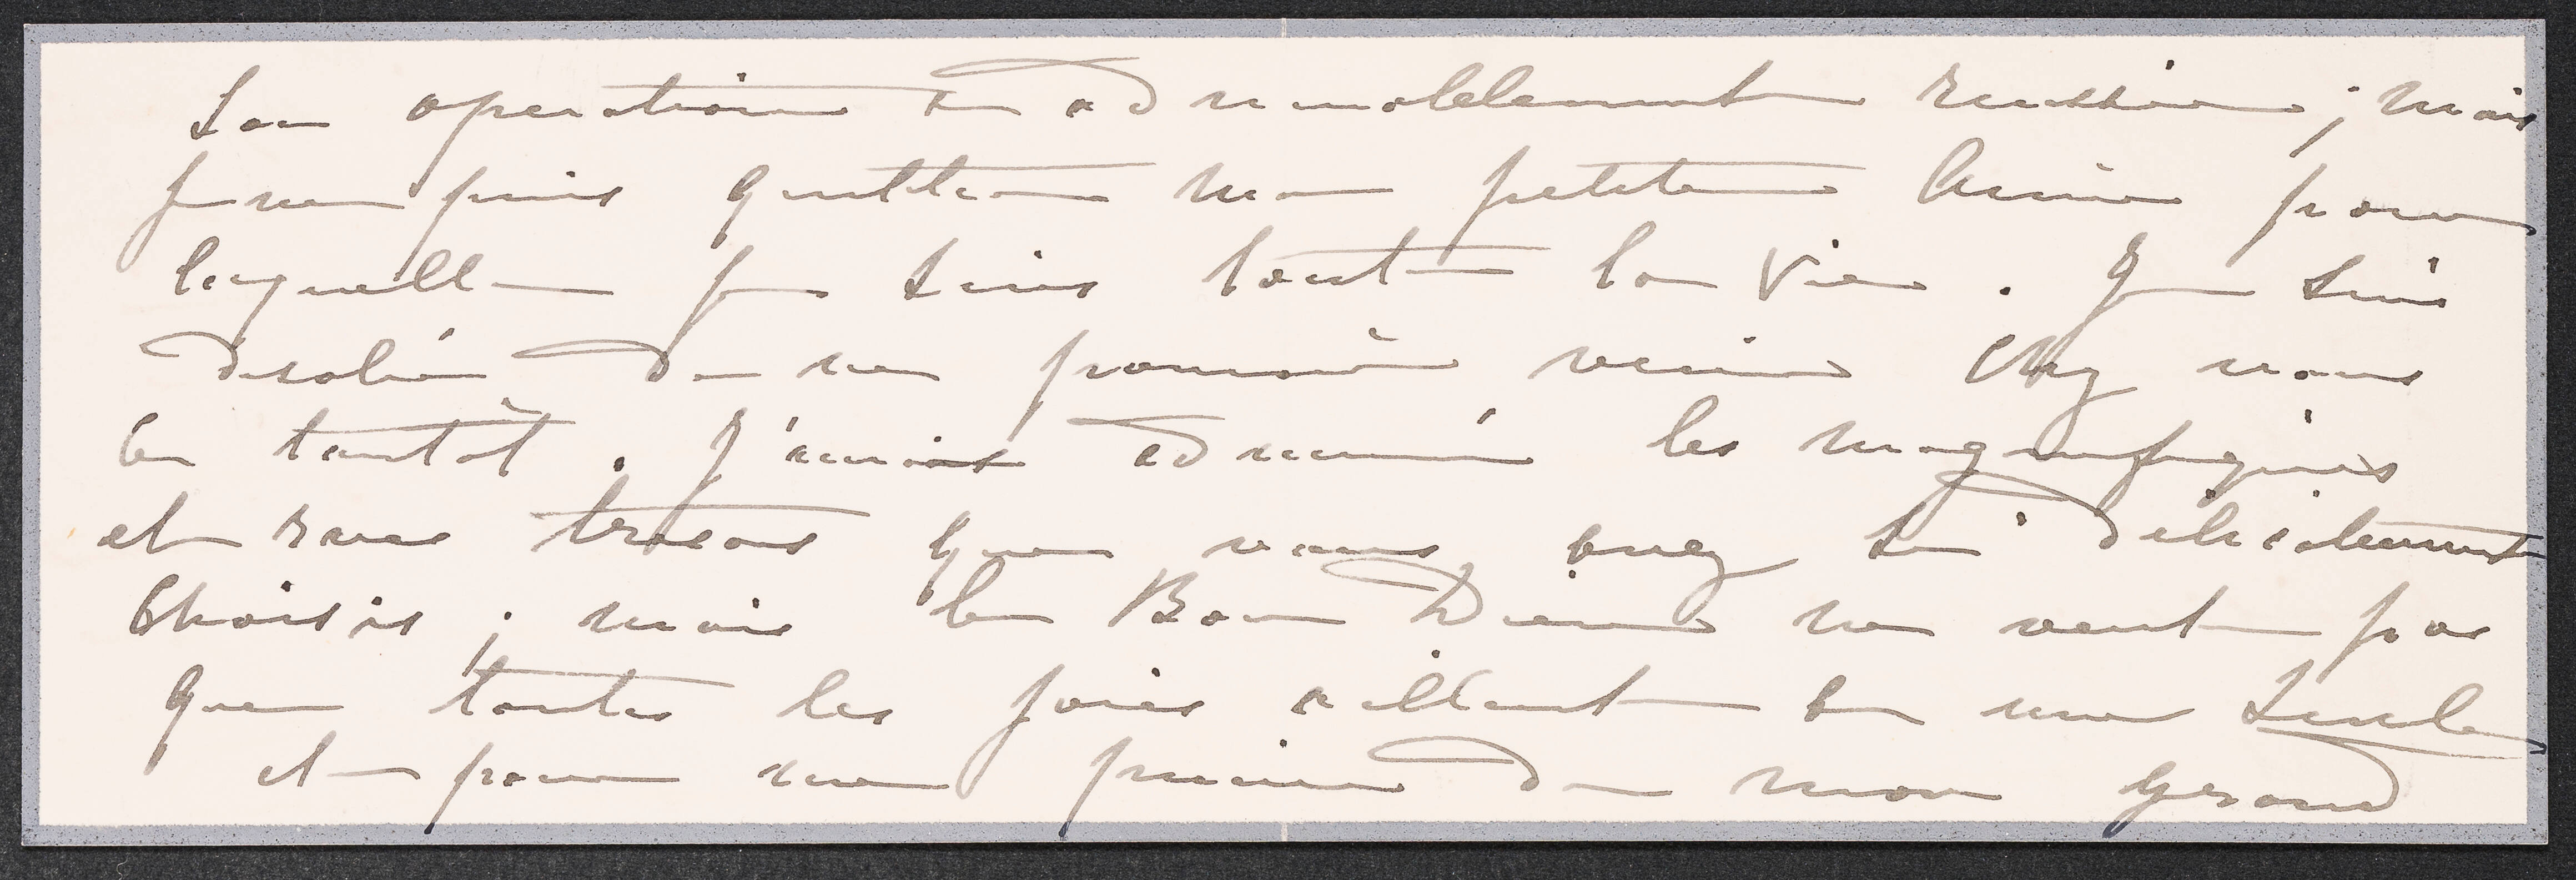 Son operation est admirablement reussie ; mais
je ne puis quitter ma petite amie pour
laquelle je suis toute la vie . Je suis
desolée de ne pouvoir venir chez vous
ce tantôt . J'aurais admiré les magnifiques
et rares tresors que vous avez si délicatement
choisis ; mais le Bon Dieu ne veut pas
que toutes les joies aillent à une seule
et pour me punir de mon grand